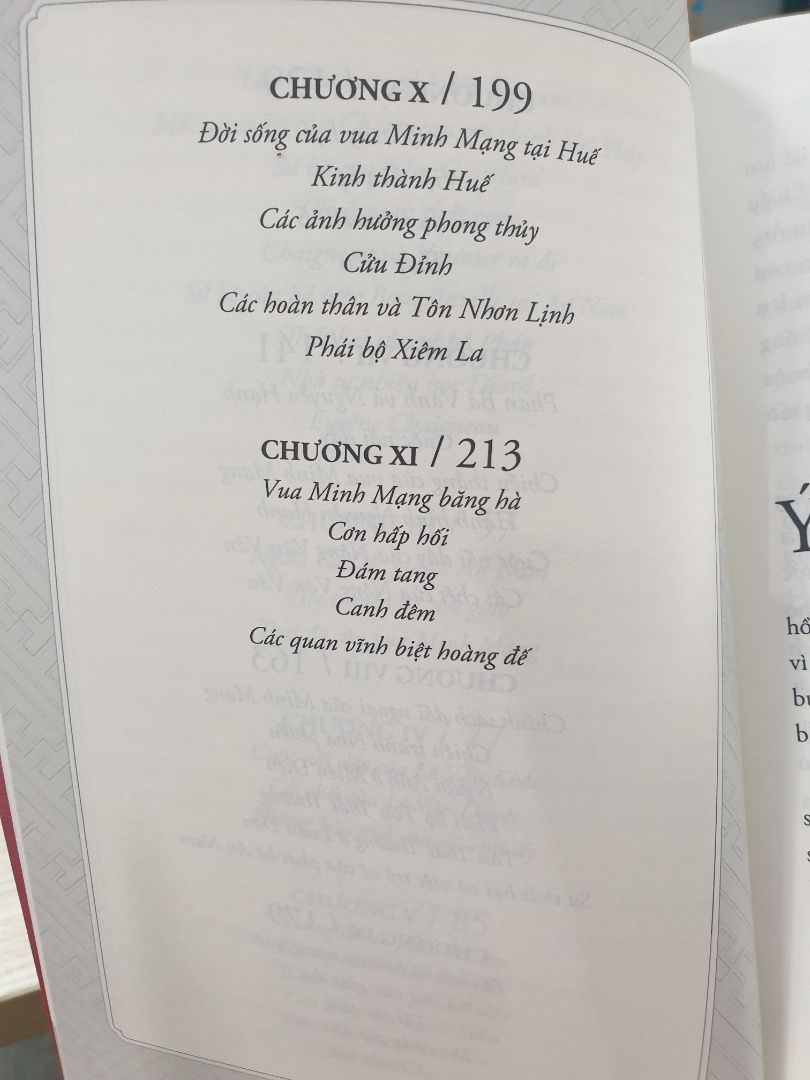 CHƯƠNG X / 199
Đời sống của vua Minh Mạng tại Huế
Kinh thành Huế
Các ảnh hưởng phong thủy
Cửu Đỉnh
Các hoàn thân và Tôn Nhơn Lịnh
Phái bộ Xiêm La
CHƯƠNG XI / 213
Vua Minh Mạng băng hà
Cơn hấp hối
Đám tang
Canh đêm
Các quan vĩnh biệt hoàng đế
Ý
hồ
vì
b